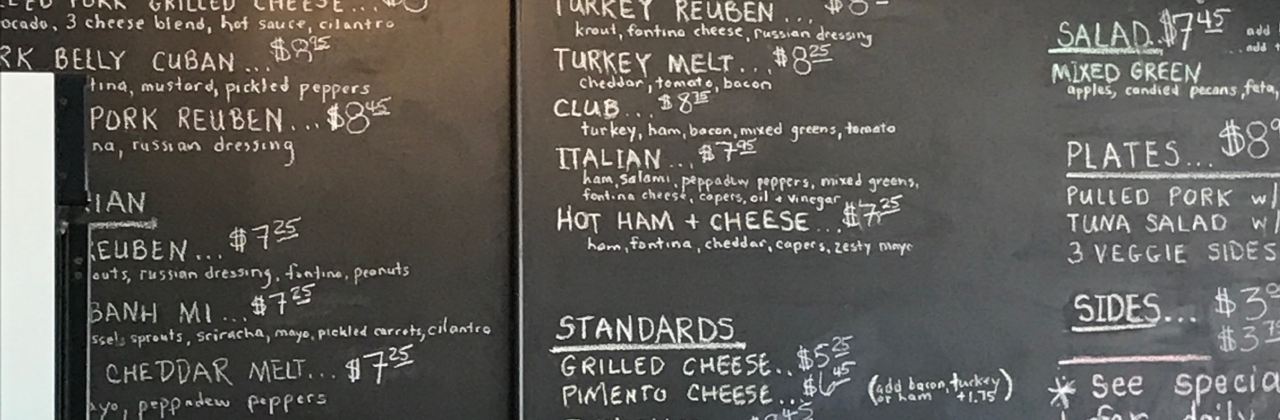 GRILLED CHEESE...
ocado, 3 cheese blend, hot sauce, cilantro
RK BELLY CUBAN... $8.95
tina, mustard, pickled peppers
PORK REUBEN... $8.45
na, russian dressing
IAN
EUBEN... $7.25
outs, russian dressing, fontina, peanuts
BANH MI... $7.25
ssel sprouts, sriracha, mayo, pickled carrots, cilantro
CHEDDAR MELT... $7.25
ayo, peppadew peppers
TURKEY REUBEN...
krout, fontina cheese, russian dressing
TURKEY MELT... $8.25
cheddar, tomato, bacon
CLUB...
turkey, ham, bacon, mixed greens, tomato
ITALIAN... $7.95
ham, salami, peppadew peppers, mixed greens,
fontina cheese, capers, oil + vinegar
HOT HAM + CHEESE... $7.25
ham, fontina, cheddar, capers, zesty mayo
STANDARDS
GRILLED CHEESE.. $5.25
PIMENTO CHEESE... $6.45 (add bacon, turkey
or ham +1.75)
SALAD.. $7.45 add
MIXED GREEN
apples, candied pecans, feta,
PLATES... $8
PULLED PORK w/
TUNA SALAD w/
3 VEGGIE SIDES
SIDES... $3
$3
* see specia